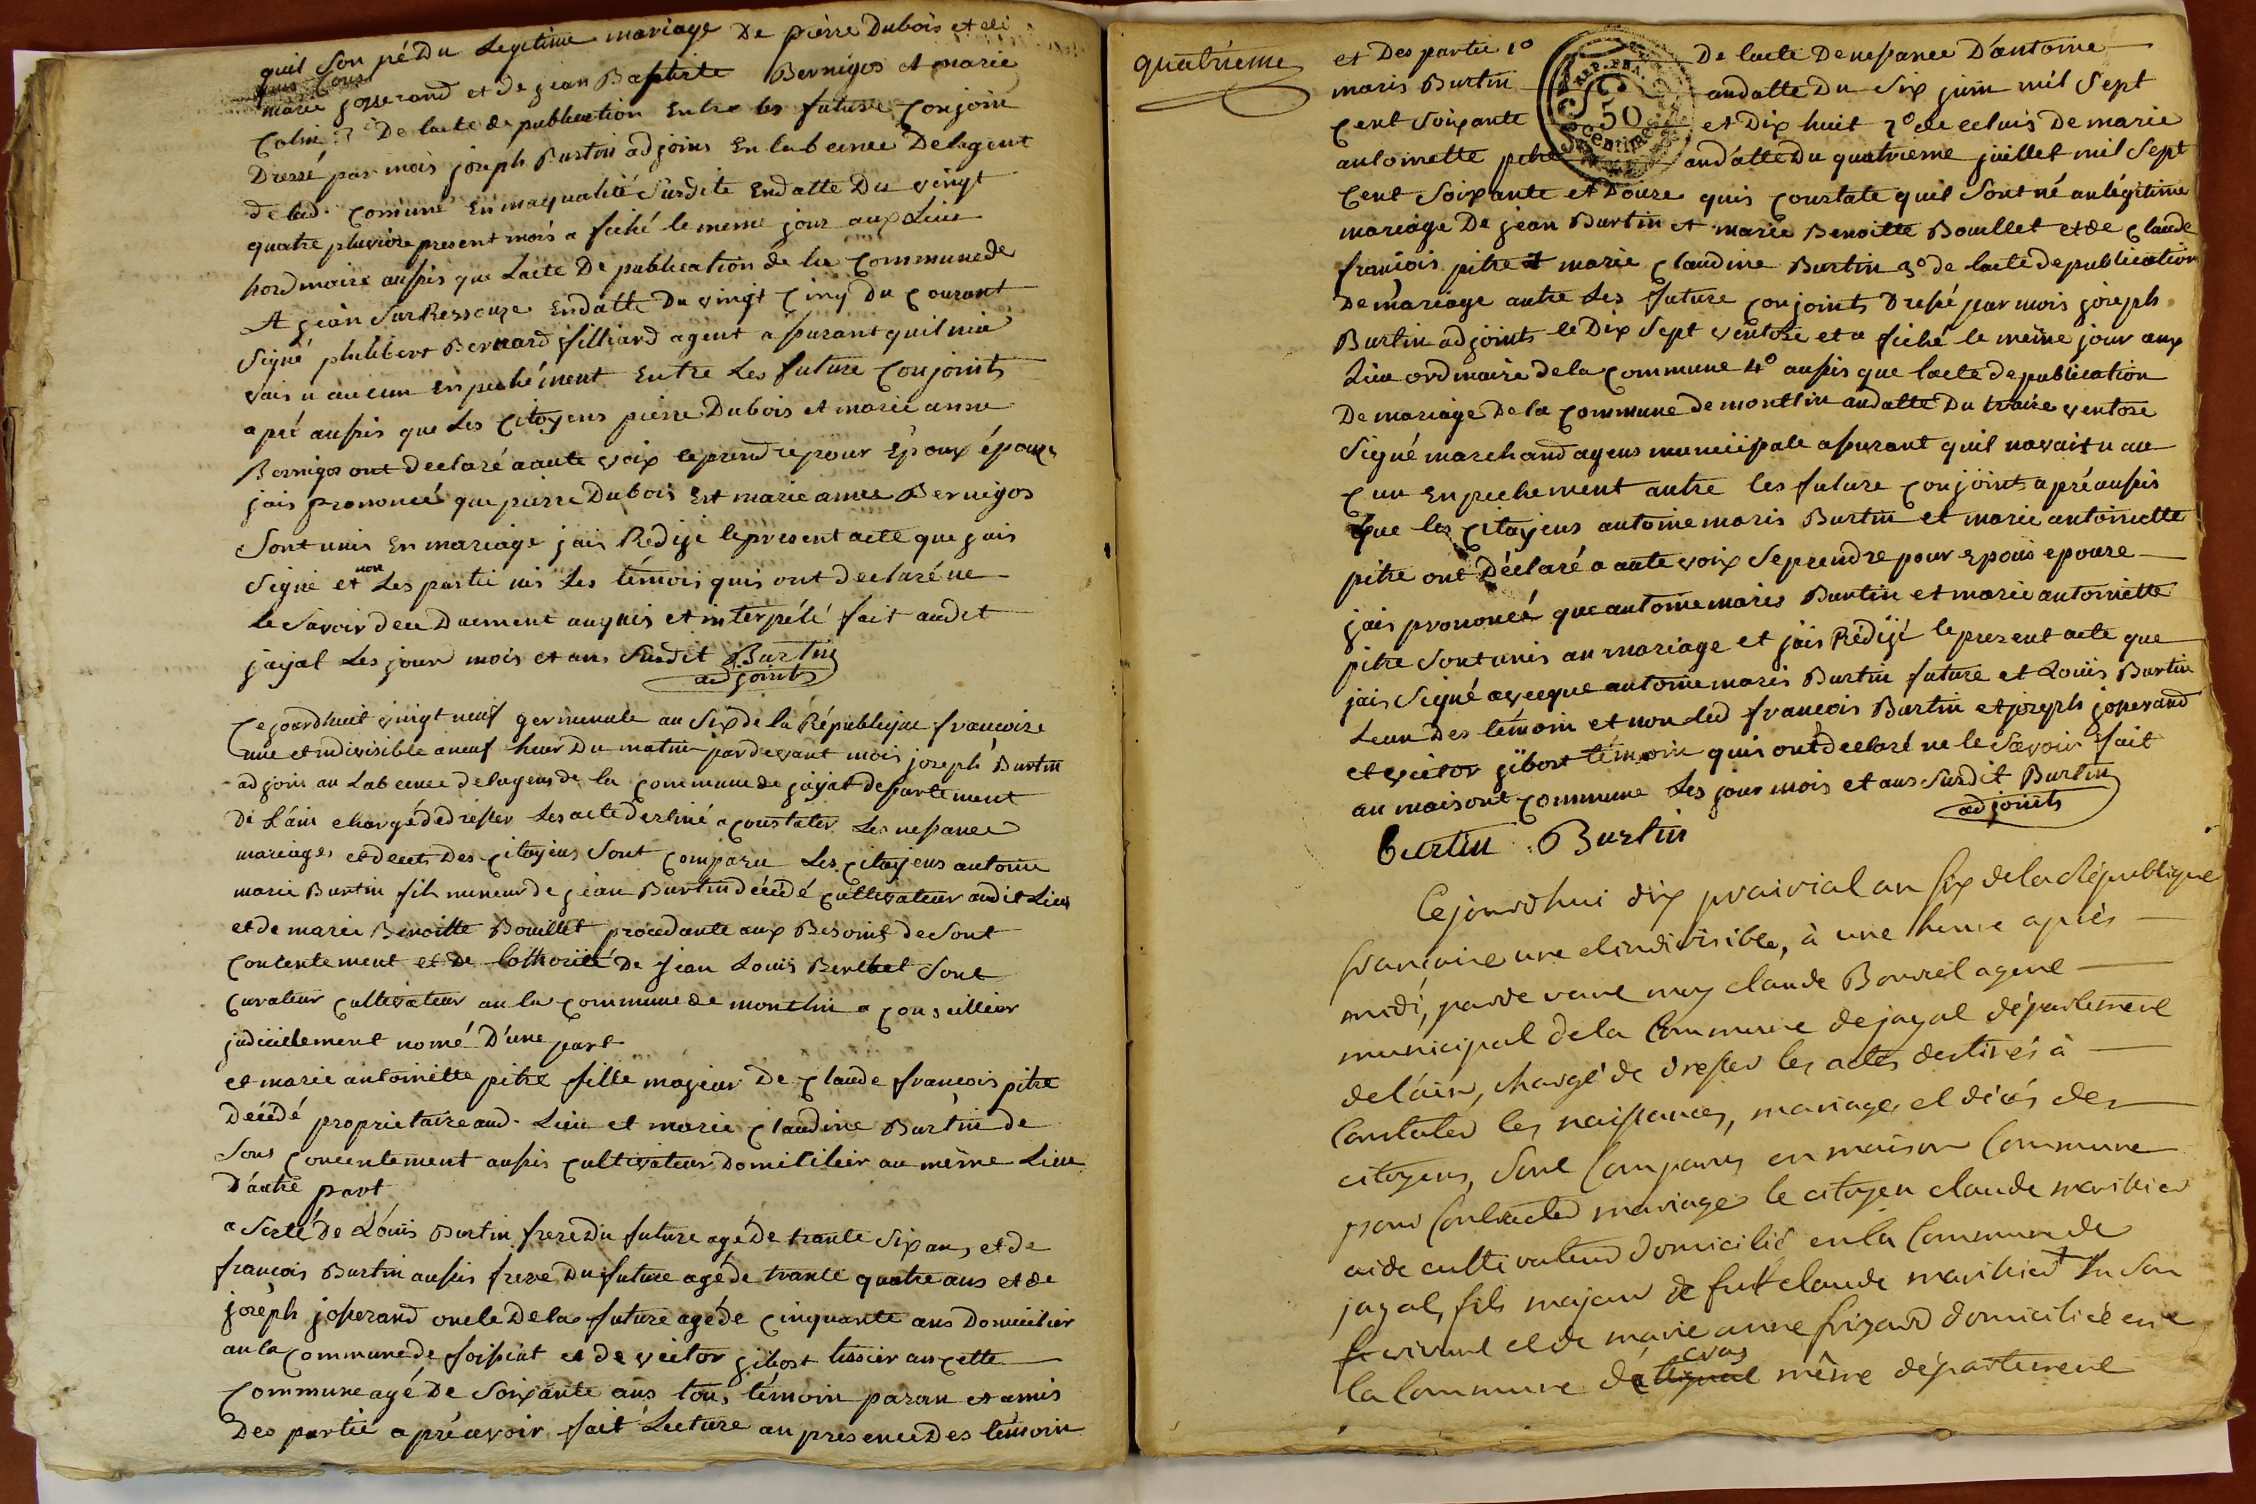 quil Son né Du Legitime mariage De pierre Dubois et de
marie josserand et de jean Baptiste Bernigos et marie
Colin 3° De lacte de publication Entre les future Conjoin
Dressé par mois joseph Burtin adjoins En labcence Delagent
de lad. Comune En maqualité Susdite Endatte Du vingt
quatre pluviose present mois a fiché le meme jour aux Lieu
hordinaire aussis que Lacte De publication de la Commune de
St jean Sur Ressouze Endatte Du vingt Cinq Du Courant
Signé philibert Bernard filliard agent assurant quil nia
vais u aucun Enpechément Entre Les future Conjoints
apré aussis que Les Citoyens pierre Dubois et marie anne
Bernigos ont declaré aaute voix seprendre pour Époux épouze
jais prononcé que pierre Dubois Et marie anne Bernigos
Sont unis En mariage jais Redijé lepresent acte que jais
Signé et non Les partie nis Les témois quis ont declaré ne
Le Savoir dece Duement anquis et interpélé fait audit
jayat Les jour mois et ans Susdit Burtin
adjoints
Cejourdhuit vingt neuf germinale an Six de la Républeque francoise
une et indivisible aneuf heur Du matin pardevant mois joseph Burtin
adjoin an Labcence delagens de la Commune de jayat departement
de L'ain chargé dedresser Les acte Destiné a Constater Les nessance
mariages et deces Des Citoyens Sont Comparu Les Citoyens antoine
marie Burtin fils mineur de jean Burtin décédé Cultivateur audit Lieu
et de marie Benoitte Bouillet procedante aux Besoins de Sont
Contentement et De lothorité De jean Louis Berthet Sont
Curateur Cultivateur an la Commune de montlin a Conseillier
judiciellement nomé D'une part
et marie antoinette pitre fille majeur De Claude francois pitre
Décédé proprietaire aud. Lieu et marie Claudine Burtin de
Sons Concentement aussis Cultivateur Domicilier au même Lieu
D'autre part
a Sisté de Louis Burtin frere Du future agé De trante Six ans et de
francois Burtin aussis frere Du future agé de trante quatre ans et de
joseph josserand oncle De la future agé de Cinquante ans Domicilier
an la Commune de foissiat et de victor gibost tissier an cette
Commune agé De Soixante ans tous témoin paran et amis
Des partie apré avoir fait Lecture an presence Des témoin
quatrieme
et Des partie 1° De lacte De nessance D'antoine
maris Burtin andatte Du Six juin mil Sept
Cent Soixante et Dix huit 2° de celuis De marie
antoinette pitre andatte Du quatrieme juillet mil Sept
Cent Soixante et Douze quis Constate quil Sont né an légitime
mariage De jean Burtin et marie Benoitte Bouillet et de Claude
francois pitre et marie Claudine Burtin 3° de lacte de publication
De mariage antre Les future Conjoints Dressé par mois joseph
Burtin adjoints le Dix Sept ventose et a fiché le meme jour aux
Lieu ordinaire de la Commune 4° aussis que lacte de publication
De mariage De la Commune de montlin andatte Du traize ventose
Signé marchand agens municipale assurant quil navait u au
Cun Enpechement antre les future Conjoints apré aussis
que les Citoyens antoine maris Burtin et marie antoinette
pitre ont Déclaré a aute voix Seprendre pour Epous epouse
jais prononcé que antoine maris Burtin et marie antoinette
pitre Sont unis an mariage et jais Rédijé le present acte que
jais Signé avecque antoine maris Burtin future et Louis Burtin
Leun Des temoin et non led francois Burtin et joseph josserand
et victor gibost témoin quis ont declaré ne le Savoir fait
an maisont Commune Les jour mois et ans Susdit Burtin
adjoints
Burtin Burtin
REP. FRA.
50
centimes
Cejourdhui dix prairial an six de la République
francaise une et indivisible, à une heure après
midi, pardevant moy claude Bourcel agent
municipal de la Commune de jayat département
delain, chargé de dresser les actes destinés à
Constater les naissances, mariages et décès des
citoyens, sont Comparus en maison Commune
pour Contracter mariage le citoyen claude marihier
aide cultivateur domicilié en la Commune de
jayat, fils majeur de fut claude marihier
vivant et de marie anne frizard domiciliée en
la Commune de cras même département